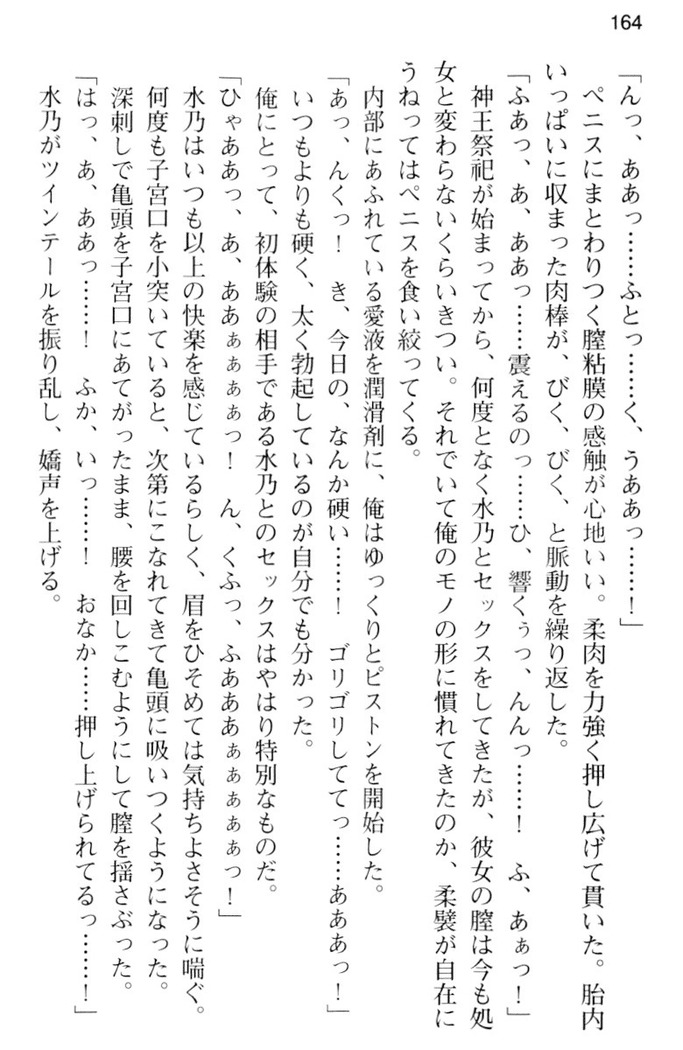 164
「んっ、ああっ……ふとっ……く、うああっ……！」
ペニスにまとわりつく膣粘膜の感触が心地いい。柔肉を力強く押し広げて貫いた。胎内
いっぱいに収まった肉棒が、びく、びく、と脈動を繰り返した。
「ふあっ、あ、ああっ……震えるのっ……ひ、響くぅっ、んんっ……！　ふ、あぁっ！」
神王祭祀が始まってから、何度となく水乃とセックスをしてきたが、彼女の膣は今も処
女と変わらないくらいきつい。それでいて俺のモノの形に慣れてきたのか、柔襞が自在に
うねってはペニスを食い絞ってくる。
内部にあふれている愛液を潤滑剤に、俺はゆっくりとピストンを開始した。
「あっ、んくっ！　き、今日の、なんか硬い……！　ゴリゴリしててっ……あああっ！」
いつもよりも硬く、太く勃起しているのが自分でも分かった。
俺にとって、初体験の相手である水乃とのセックスはやはり特別なものだ。
「ひゃああっ、あ、ああぁぁぁぁっ！　ん、くふっ、ふあああぁぁぁぁぁっ！」
水乃はいつも以上の快楽を感じているらしく、眉をひそめては気持ちよさそうに喘ぐ。
何度も子宮口を小突いていると、次第にこなれてきて亀頭に吸いつくようになった。
深刺しで亀頭を子宮口にあてがったまま、腰を回しこむようにして膣を揺さぶった。
「はっ、あ、ああっ……！　ふか、いっ……！　おなか……押し上げられてるっ……！」
水乃がツインテールを振り乱し、嬌声を上げる。